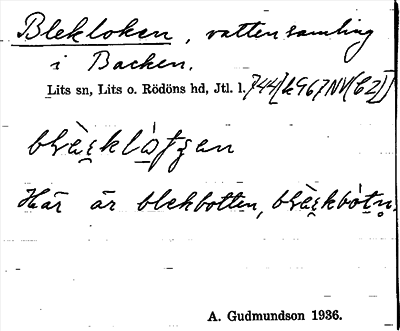 Blekloken, vattensamling
i Backen.
Lits sn, Lits o. Rödöns hd, Jtl. l. 744[k967NV(C2)]
Här är blekbotten,
A. Gudmundson 1936.